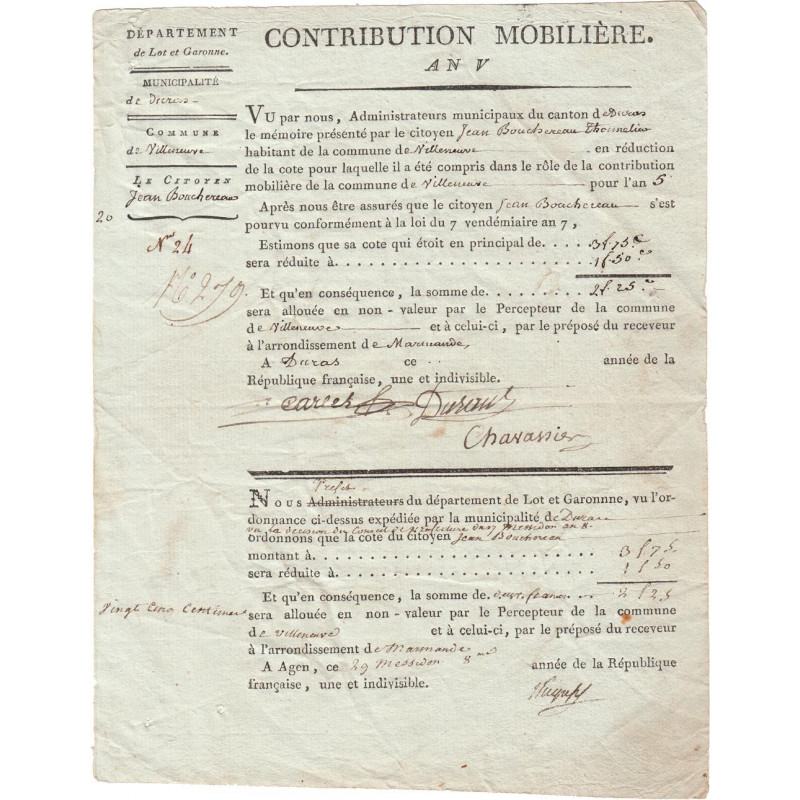 DÉPARTEMENT
de Lot et Garonne.
MUNICIPALITÉ
de Duras
COMMUNE
de Villeneuve
LE CITOYEN
Jean Bouchereau
20
Nro 24
No 279.
CONTRIBUTION MOBILIÈRE.
AN V
VU par nous, Administrateurs municipaux du canton de Duras
le mémoire présenté par le citoyen Jean Bouchereau
habitant de la commune de Villeneuve en réduction
de la cote pour laquelle il a été compris dans le rôle de la contribution
mobilière de la commune de Villeneuve pour l'an 5
Après nous être assurés que le citoyen Jean Bouchereau s'est
pourvu conformément à la loi du 7 vendémiaire an 7,
Estimons que sa cote qui étoit en principal de. . . . . 3f. 75c
sera réduite à. . . . . . . . . . . . . . . . 1f. 50c
Et qu'en conséquence, la somme de. . . . . . . 2f. 25c
sera allouée en non-valeur par le Percepteur de la commune
de Villeneuve et à celui-ci, par le préposé du receveur
à l'arrondissement de Marmande,
A Duras ce année de la
République française, une et indivisible.
Durand
Chavassier
Préfet
NOUS Administrateurs du département de Lot et Garonnne, vu l'or-
donnance ci-dessus expédiée par la municipalité de Duras
vu la décision du Conseil de préfecture du 17 Messidor an 8.
ordonnons que la cote du citoyen Jean Bouchereau
montant à. . . . . . . . . . . . . . . . 3f 75.
sera réduite à. . . . . . . . . . . . . . 1f 50
Et qu'en conséquence, la somme de deux francs 2f 25
Vingt Cinq Centimes
sera allouée en non-valeur par le Percepteur de la commune
de Villeneuve et à celui-ci, par le préposé du receveur
à l'arrondissement de Marmande
A Agen, ce 29 Messidor 8me année de la République
française, une et indivisible.